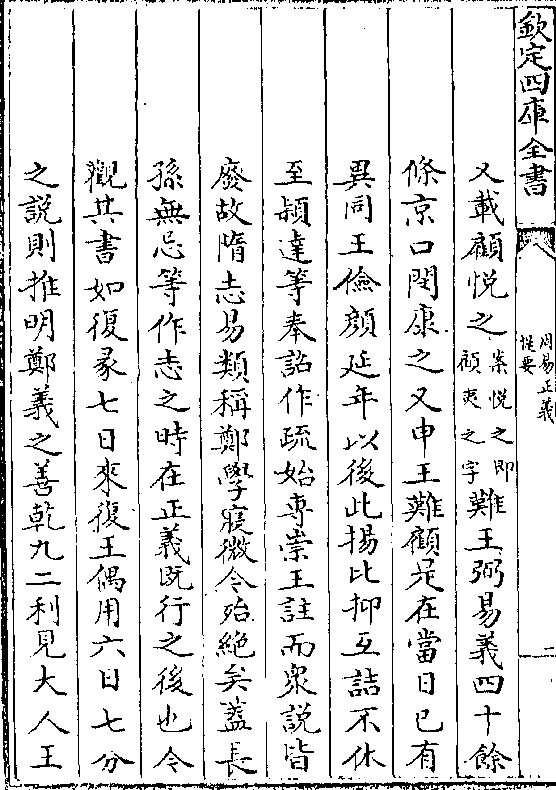 欽定四庫全書
周易正義
提要
二
又載顧悅之案悅之即顧夷之字難王弼易義四十餘
條京口閔康之又申王難顧是在當日已有
異同王儉顏延年以後此揚彼抑互詰不休
至穎達等奉詔作疏始專崇王註而衆說皆
廢故隋志易類稱鄭學寖微今殆絶矣蓋長
孫無忌等作志之時在正義既行之後也今
觀其書如復彖七日來復王偶用六日七分
之說則推明鄭義之善乾九二利見大人王